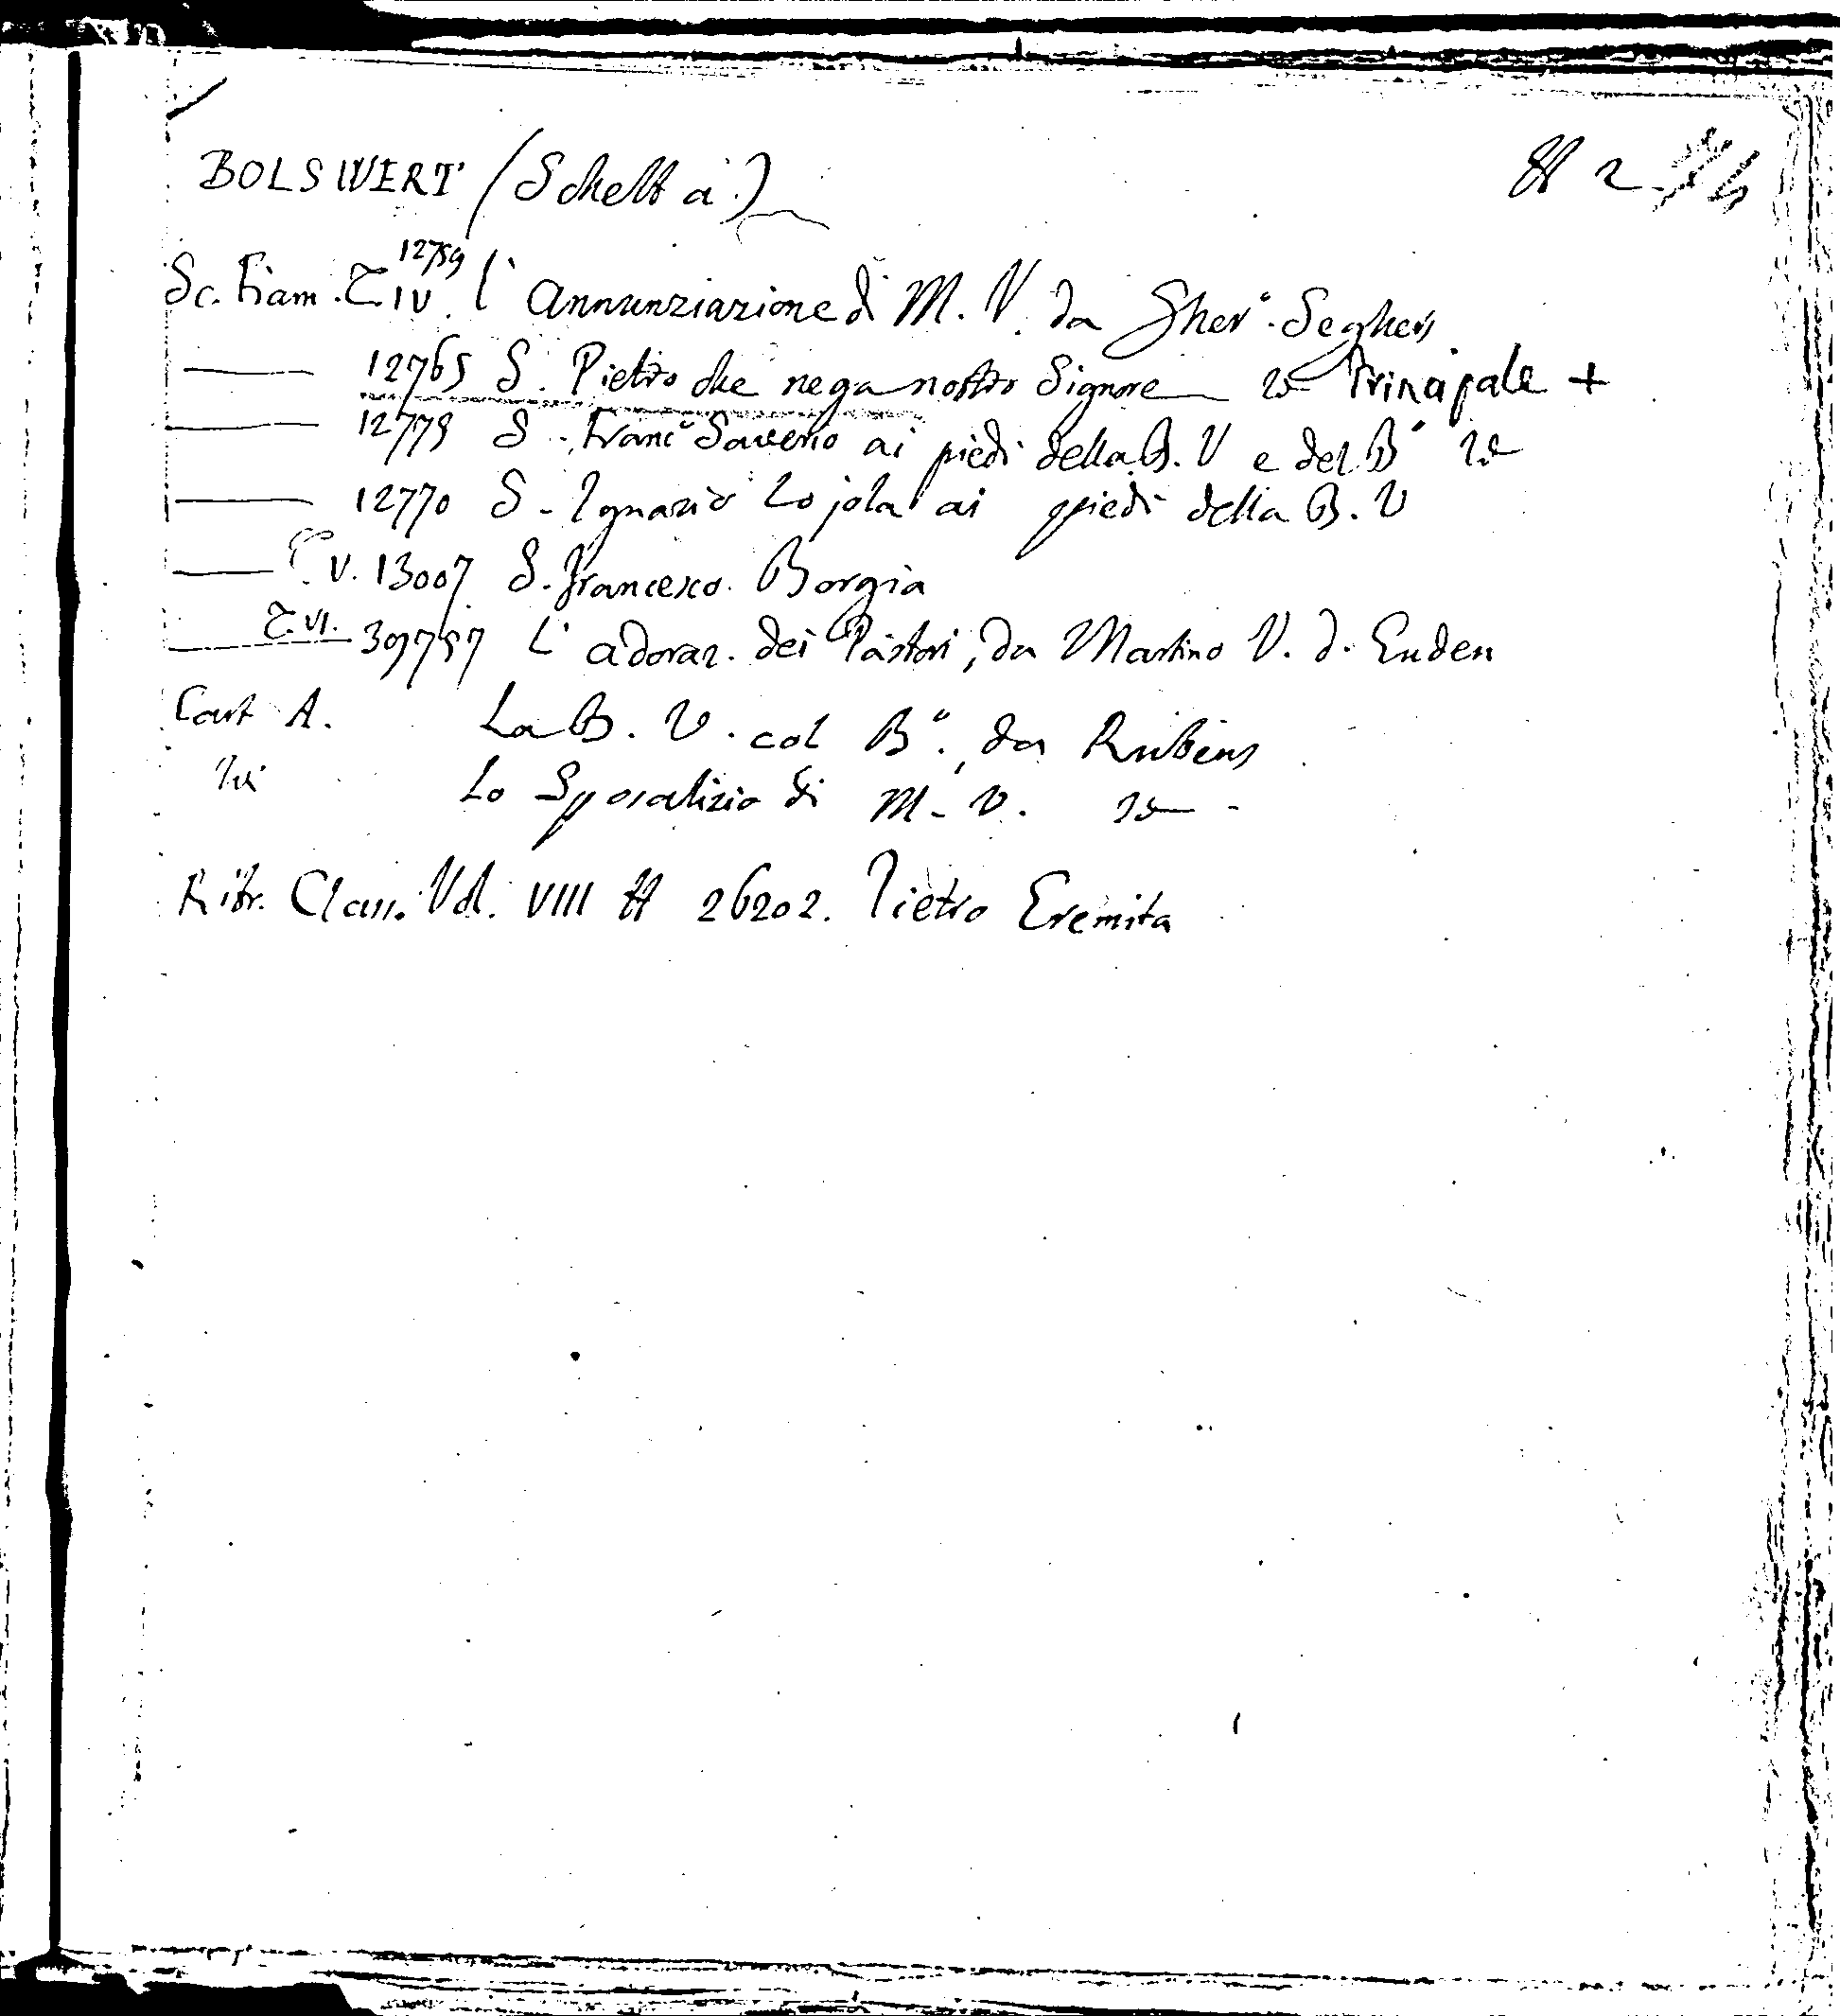 BOLSWERT (Schelt a.) # 2
Sc. Fiam. T. IV. 12759 L'Annunziazione di M. V. da Gher.º Seghers
—— 12765 S. Pietro che nega nostro Signore id Principale +
—— 12779 S. Franc.º Saverio ai piedi della B. V e del B.º id
—— 12770 S. Ignazio Lojola ai piedi della B. V
—— T. V. 13007 S. Francesco Borgia
—— T. VI. 39757 L'adoraz. dei Pastori, da Martino V. d. Enden
Cart A. La B. V. col B.º, da Rubens
Ivi Lo Sposalizio di M. V. id
Ritr. Class. Vol. VIII # 26202. Pietro Eremita